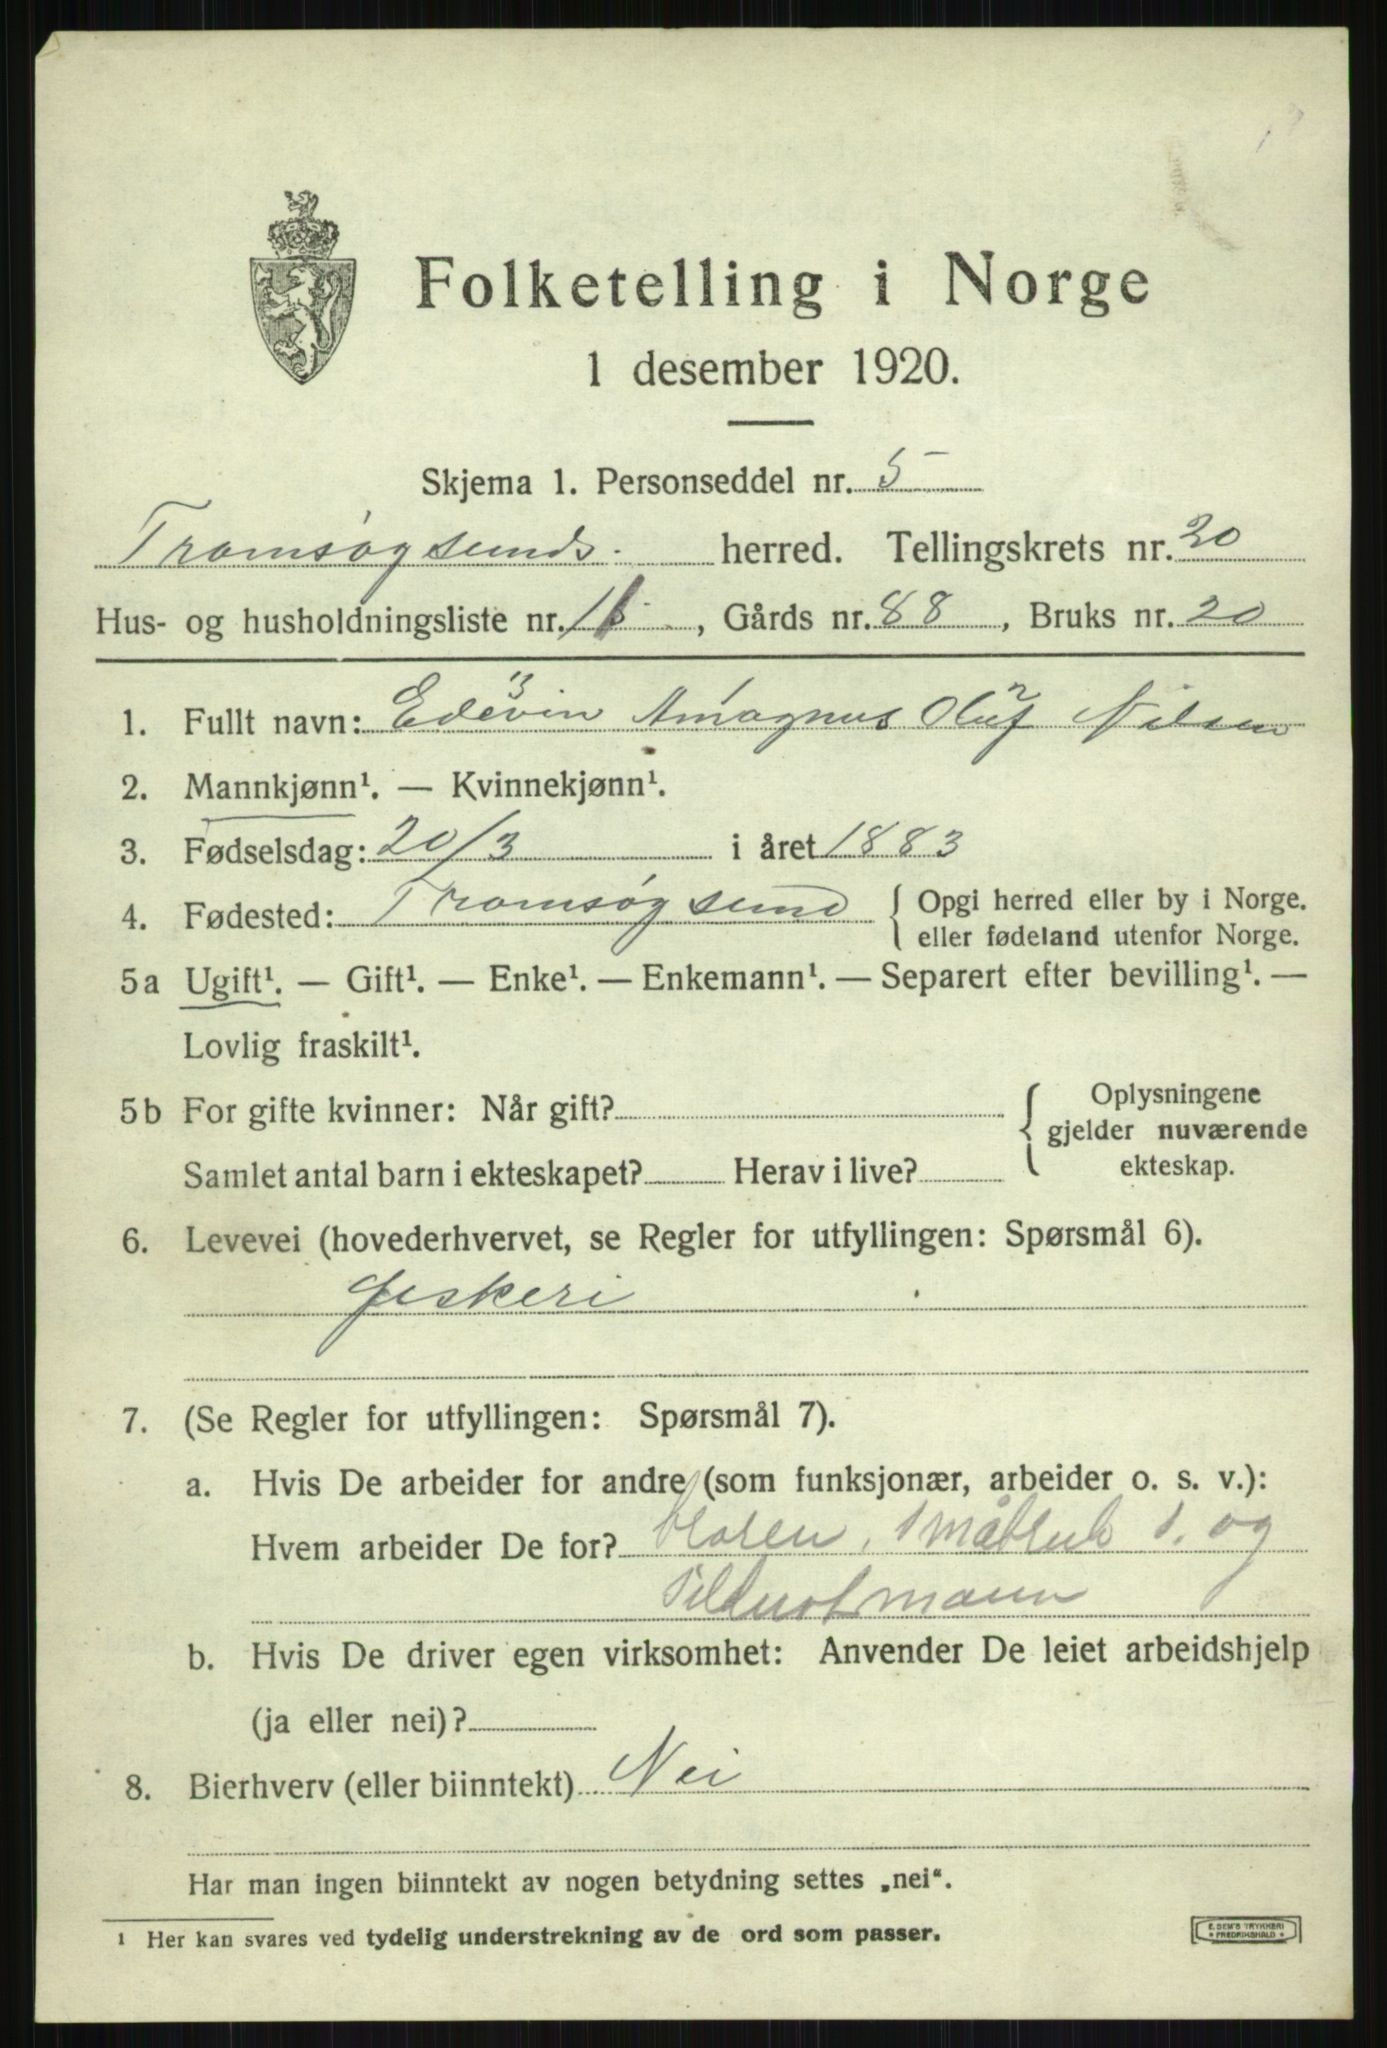 Folketelling i Norge
1 desember 1920.
Skjema 1. Personseddel nr. 5
Tromsøysunds. herred. Tellingskrets nr. 20
Hus- og husholdningsliste nr. 11, Gårds nr. 88, Bruks nr. 20
1. Fullt navn: Edevin Amagnus Oluf Nilsen
2. Mannkjønn¹. — Kvinnekjønn¹.
3. Fødselsdag: 20/3 i året 1883
4. Fødested: Tromsøysund { Opgi herred eller by i Norge.
eller fødeland utenfor Norge.
5a Ugift¹. — Gift¹. — Enke¹. — Enkemann¹. — Separert efter bevilling¹. —
Lovlig fraskilt¹.
5b For gifte kvinner: Når gift? { Oplysningene
gjelder nuværende
Samlet antal barn i ekteskapet? Herav i live? ekteskap.
6. Levevei (hovederhvervet, se Regler for utfyllingen: Spørsmål 6).
Fiskeri
7. (Se Regler for utfyllingen: Spørsmål 7).
a. Hvis De arbeider for andre (som funksjonær, arbeider o. s. v.):
Hvem arbeider De for? Småbruk s. og
b. Hvis De driver egen virksomhet: Anvender De leiet arbeidshjelp
(ja eller nei)?
8. Bierhverv (eller biinntekt) Nei
Har man ingen biinntekt av nogen betydning settes „nei“.
¹ Her kan svares ved tydelig understrekning av de ord som passer.
E. SEM'S TRYKKERI
* FREDRIKSHALD *